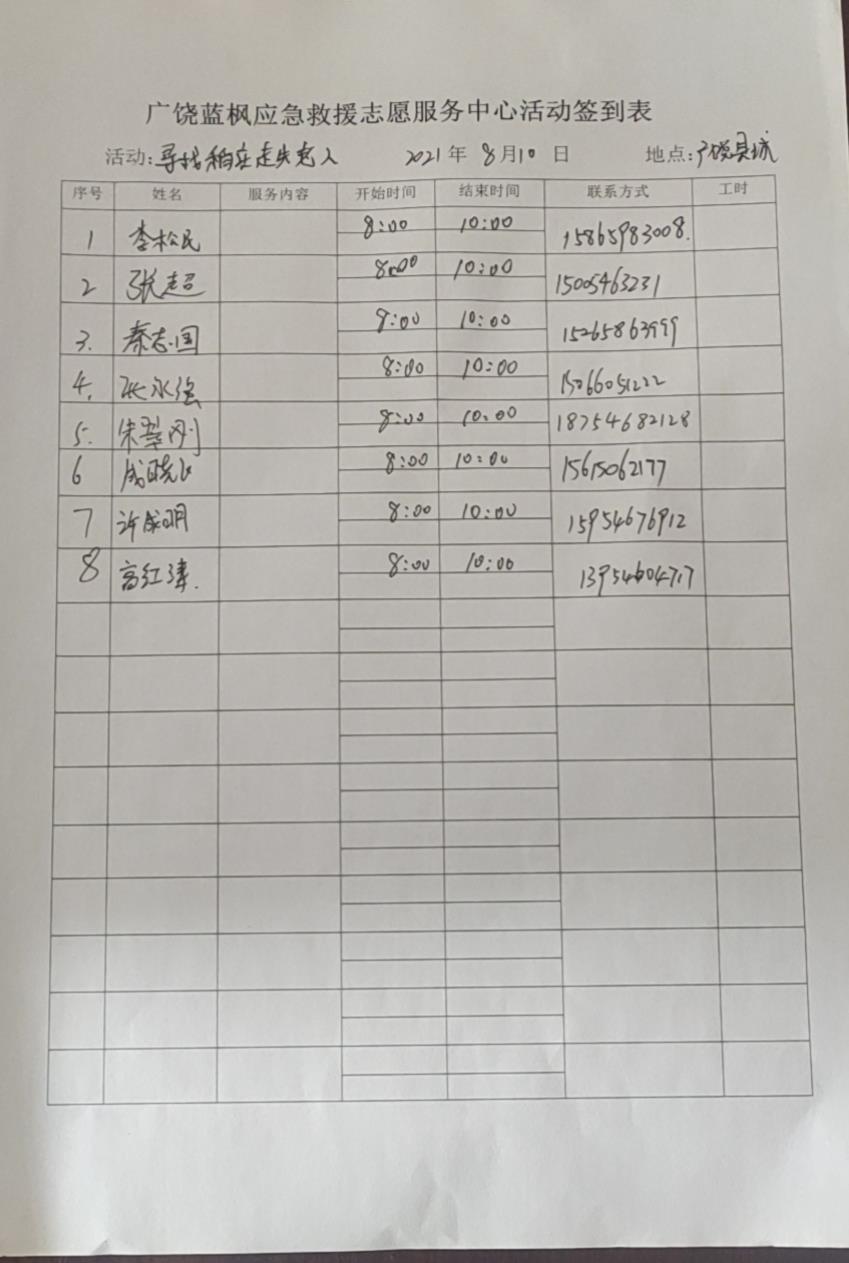 广饶蓝枫应急救援志愿服务中心活动签到表
活动:寻找稻庄走失老人 2021年 8月10日 地点:广饶县城
序号 姓名 服务内容 开始时间 结束时间 联系方式 工时
1 李松民 8:00 10:00 15865983008.
2 张超 8:00 10:00 15005463231
3. 秦志国 8:00 10:00 15265863999
4. 张永强 8:00 10:00 15066051222
5. 朱翠刚 8:00 10:00 18754682128
6 成晓 8:00 10:00 15615062177
7 许成明 8:00 10:00 15954676912
8 高红涛. 8:00 10:00 13954604717